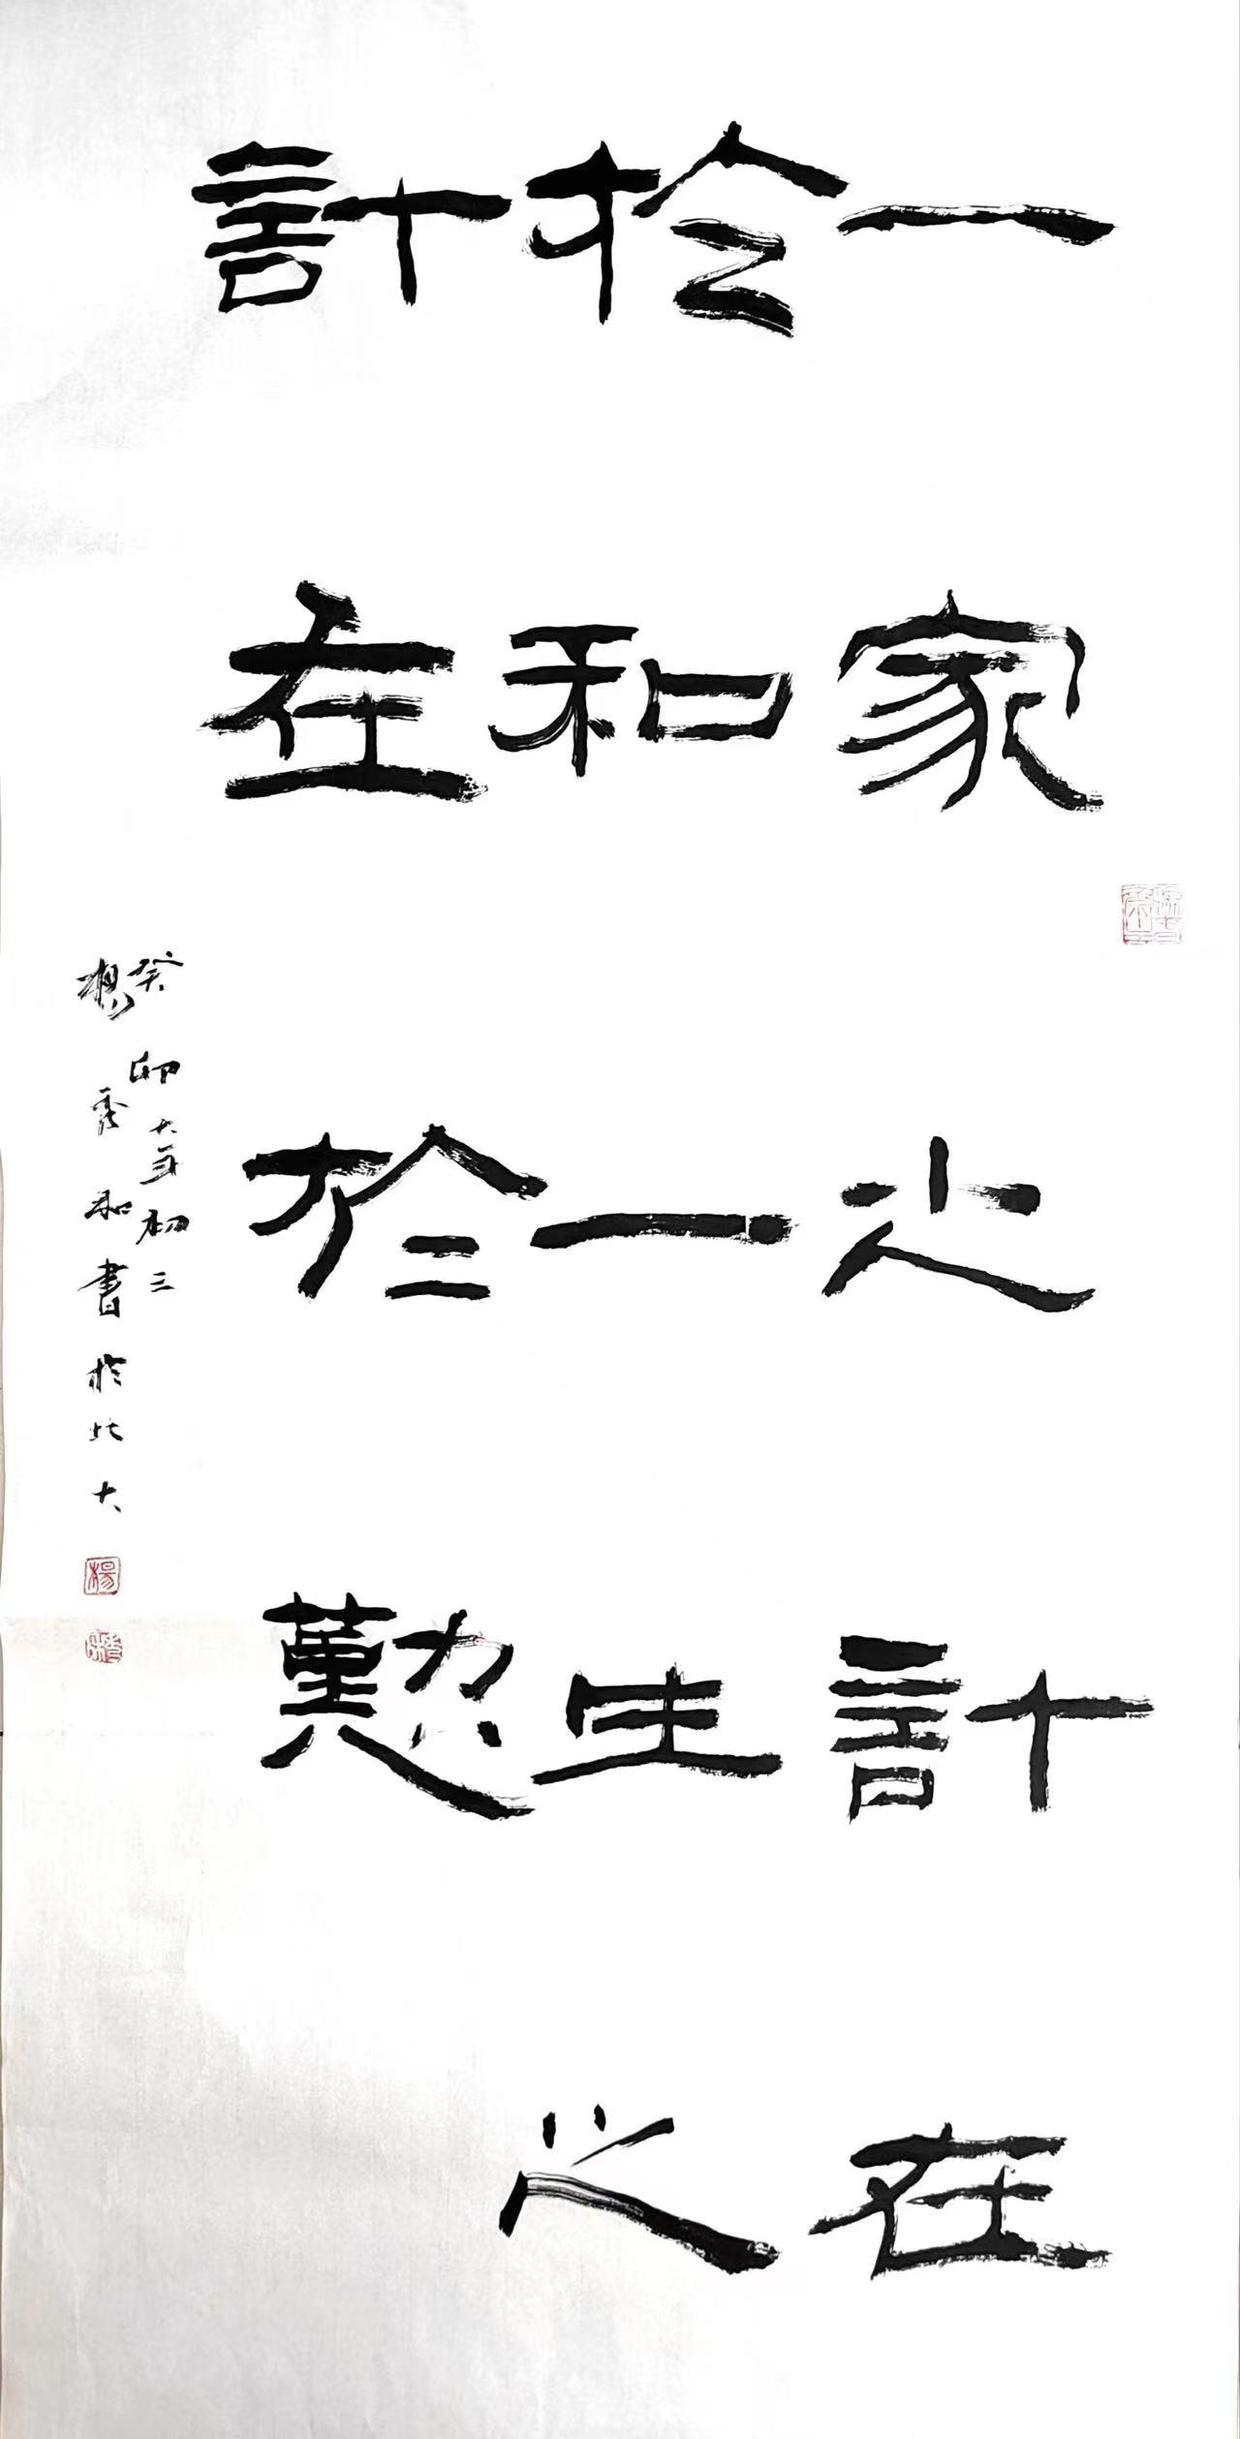 一家之計在
於和一生之
計在於懃
癸卯大年初三
楊秀和書於北大
楊